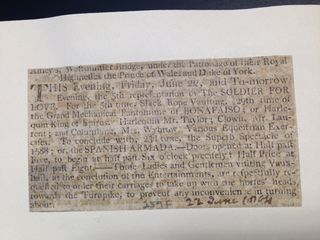 Westminster Bridge, under the Patronage of their Royal
Highnesses the Prince of Wales and Duke of York.
THIS Evening, Friday, June 20, and To-morrow
Evening, the 5th representation of The SOLDIER FOR
LOVE. For the 5th time, Slack Rope Vaulting. 29th time of
the Grand Mechanical Pantomime of BONAFASIO; or Harle-
quin King of Spain. Harlequin, Mr. Taylor; Clown, Mr. Lau-
rent; and Columbine, Mrs. Wybrow. Various Equestrian Exer-
cises. To conclude with, time, the Superb Spectacle of
1588; or, the SPANISH ARMADA.—Doors opened at Half past
Five, to begin at half past Six o'clock precisely; Half Price at
Half past Eight.—Those Ladies and Gentlemen visiting Vaux-
hall, at the conclusion of the Entertainments, are respectfully re-
quested to order their carriages to take up with the horses' heads,
towards the Turnpike, to prevent any inconvenience in turning
about.
22 June